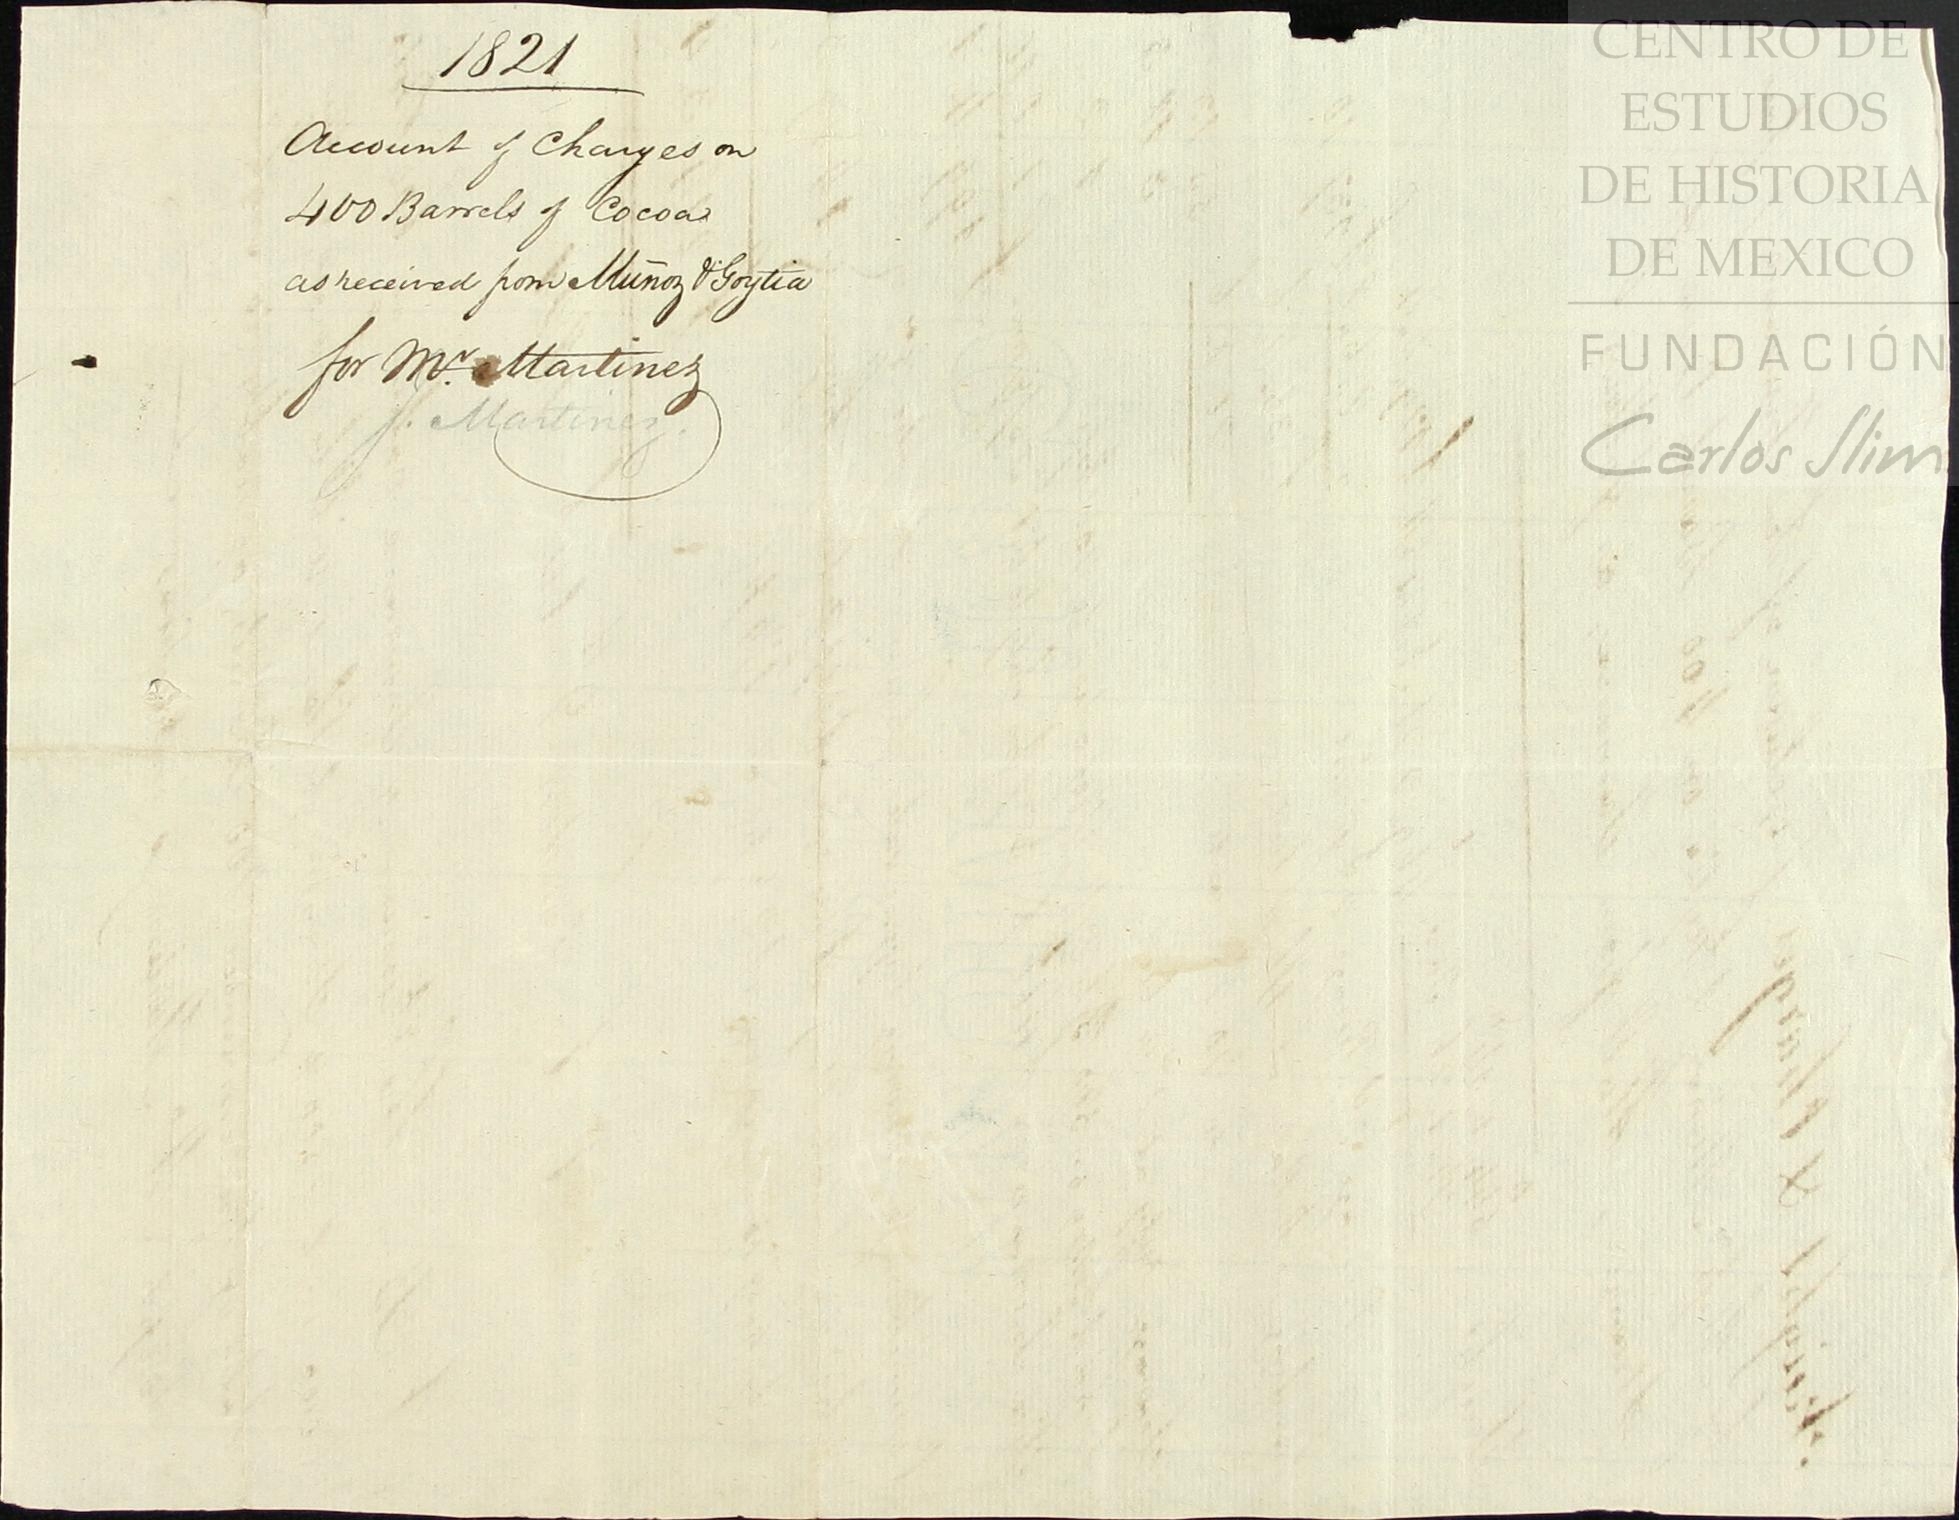 1821
Account of Charges on
400 Barrels of Cocoa
as received from Muñoz & Goytia
for Mr. Martinez
J. Martinez.
CENTRO DE
ESTUDIOS
DE HISTORIA
DE MEXICO
FUNDACIÓN
Carlos Slim